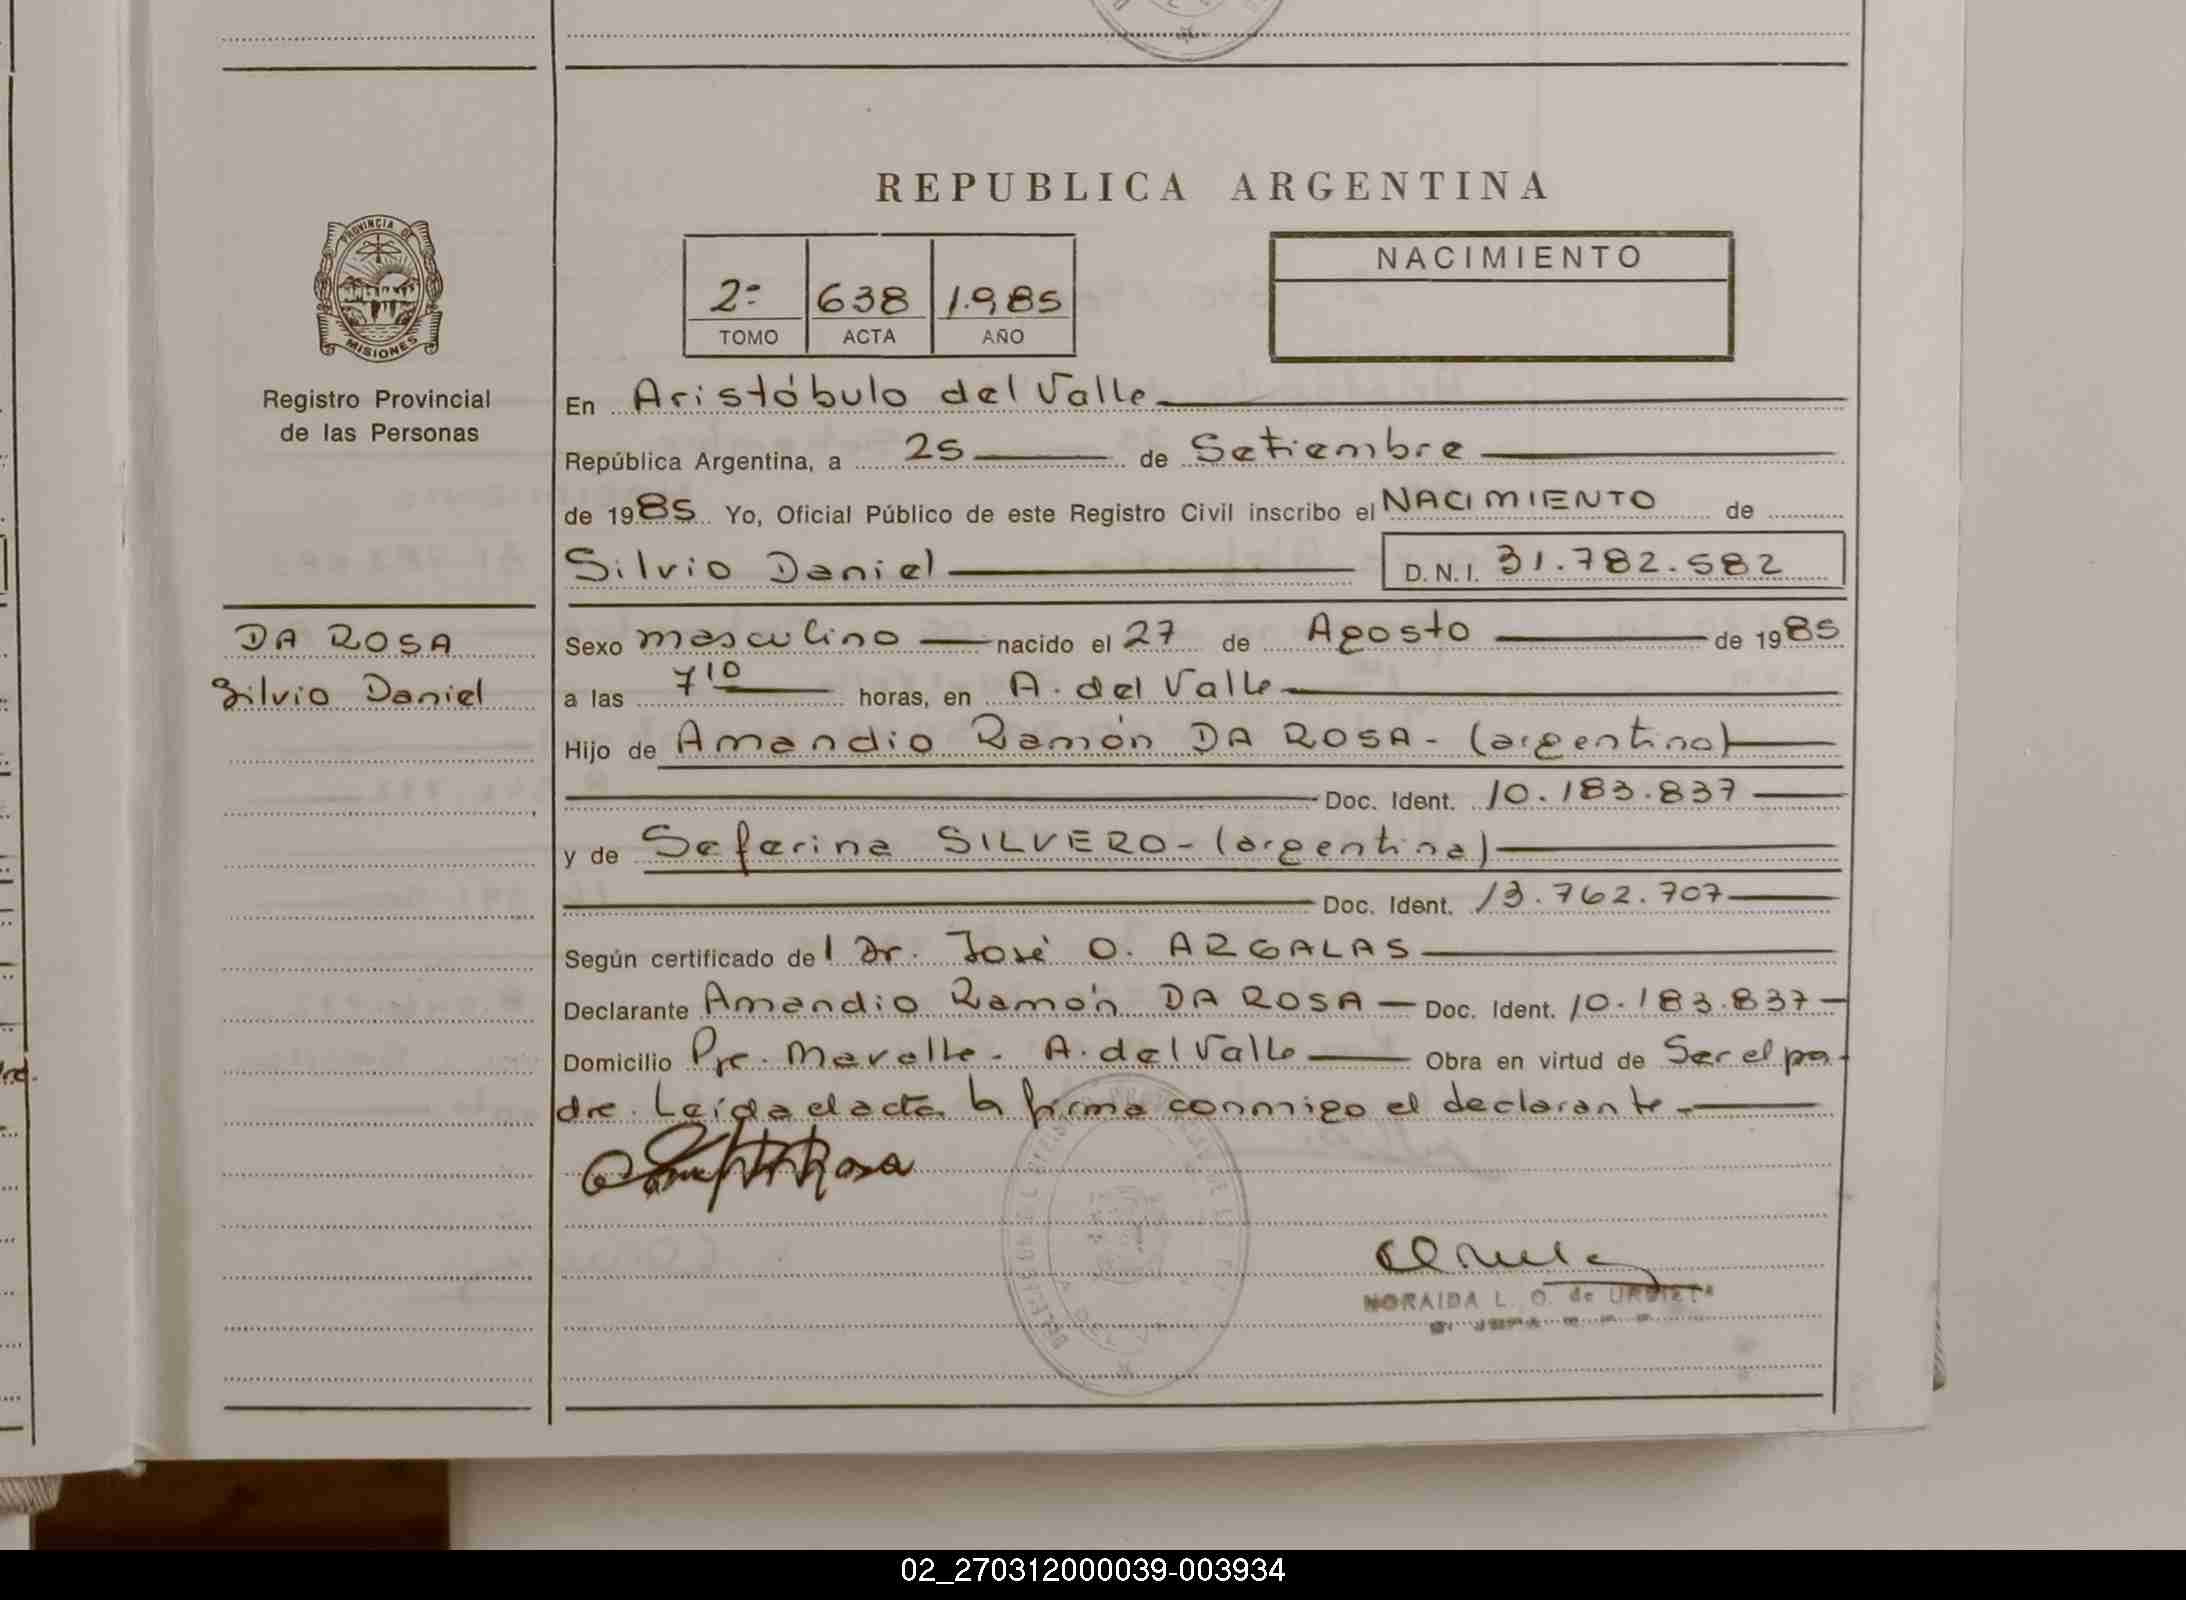 REPUBLICA ARGENTINA
PROVINCIA DE
MISIONES
Registro Provincial
de las Personas
2º 638 1.985
TOMO ACTA AÑO
NACIMIENTO
En Aristóbulo del Valle
República Argentina, a 25 de Setiembre
de 1985 Yo, Oficial Público de este Registro Civil inscribo el NACIMIENTO de
Silvio Daniel D.N.I. 31.782.582
DA ROSA
Silvio Daniel
Sexo masculino nacido el 27 de Agosto de 1985
a las 7 10 horas, en A. del Valle
Hijo de Amandio Ramón DA ROSA - (argentino)
Doc. Ident. 10.183.837
y de Seferina SILVERO - (argentina)
Doc. Ident. 13.762.707
Según certificado del Dr. José O. ARGALAS
Declarante Amandio Ramón DA ROSA - Doc. Ident. 10.183.837
Domicilio Pje. Mavalle - A. del Valle Obra en virtud de Ser el pa-
dre. Leída el acta la firma conmigo el declarante.-
Rosa
NORAIDA L. O. de URBIETA
02_270312000039-003934